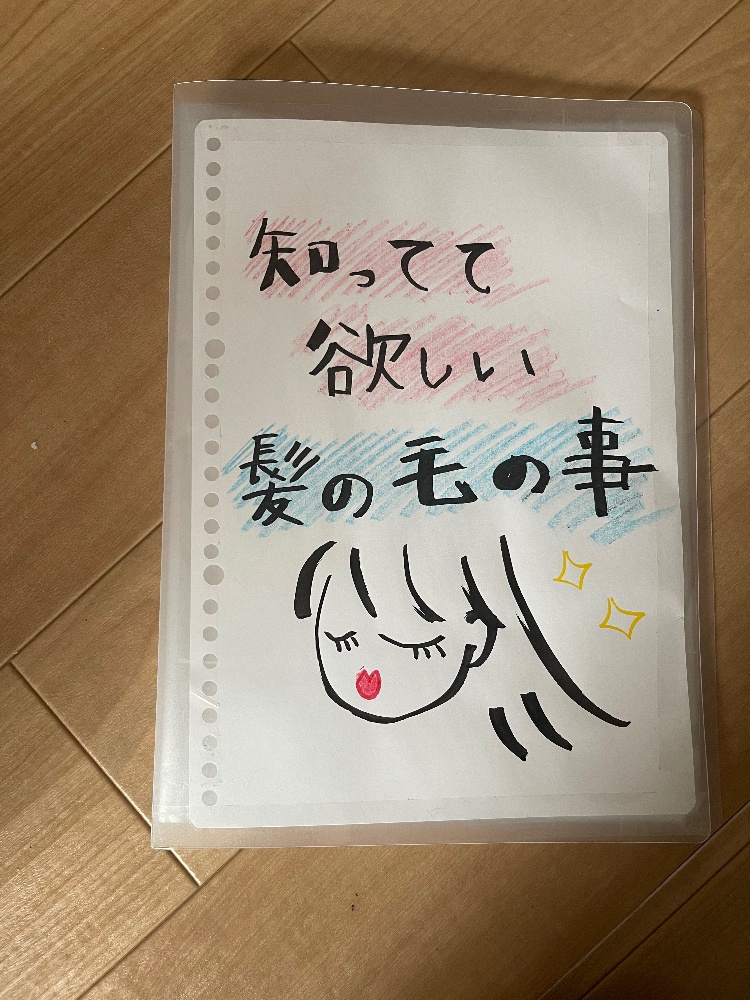 知ってて
欲しい
髪の毛の事